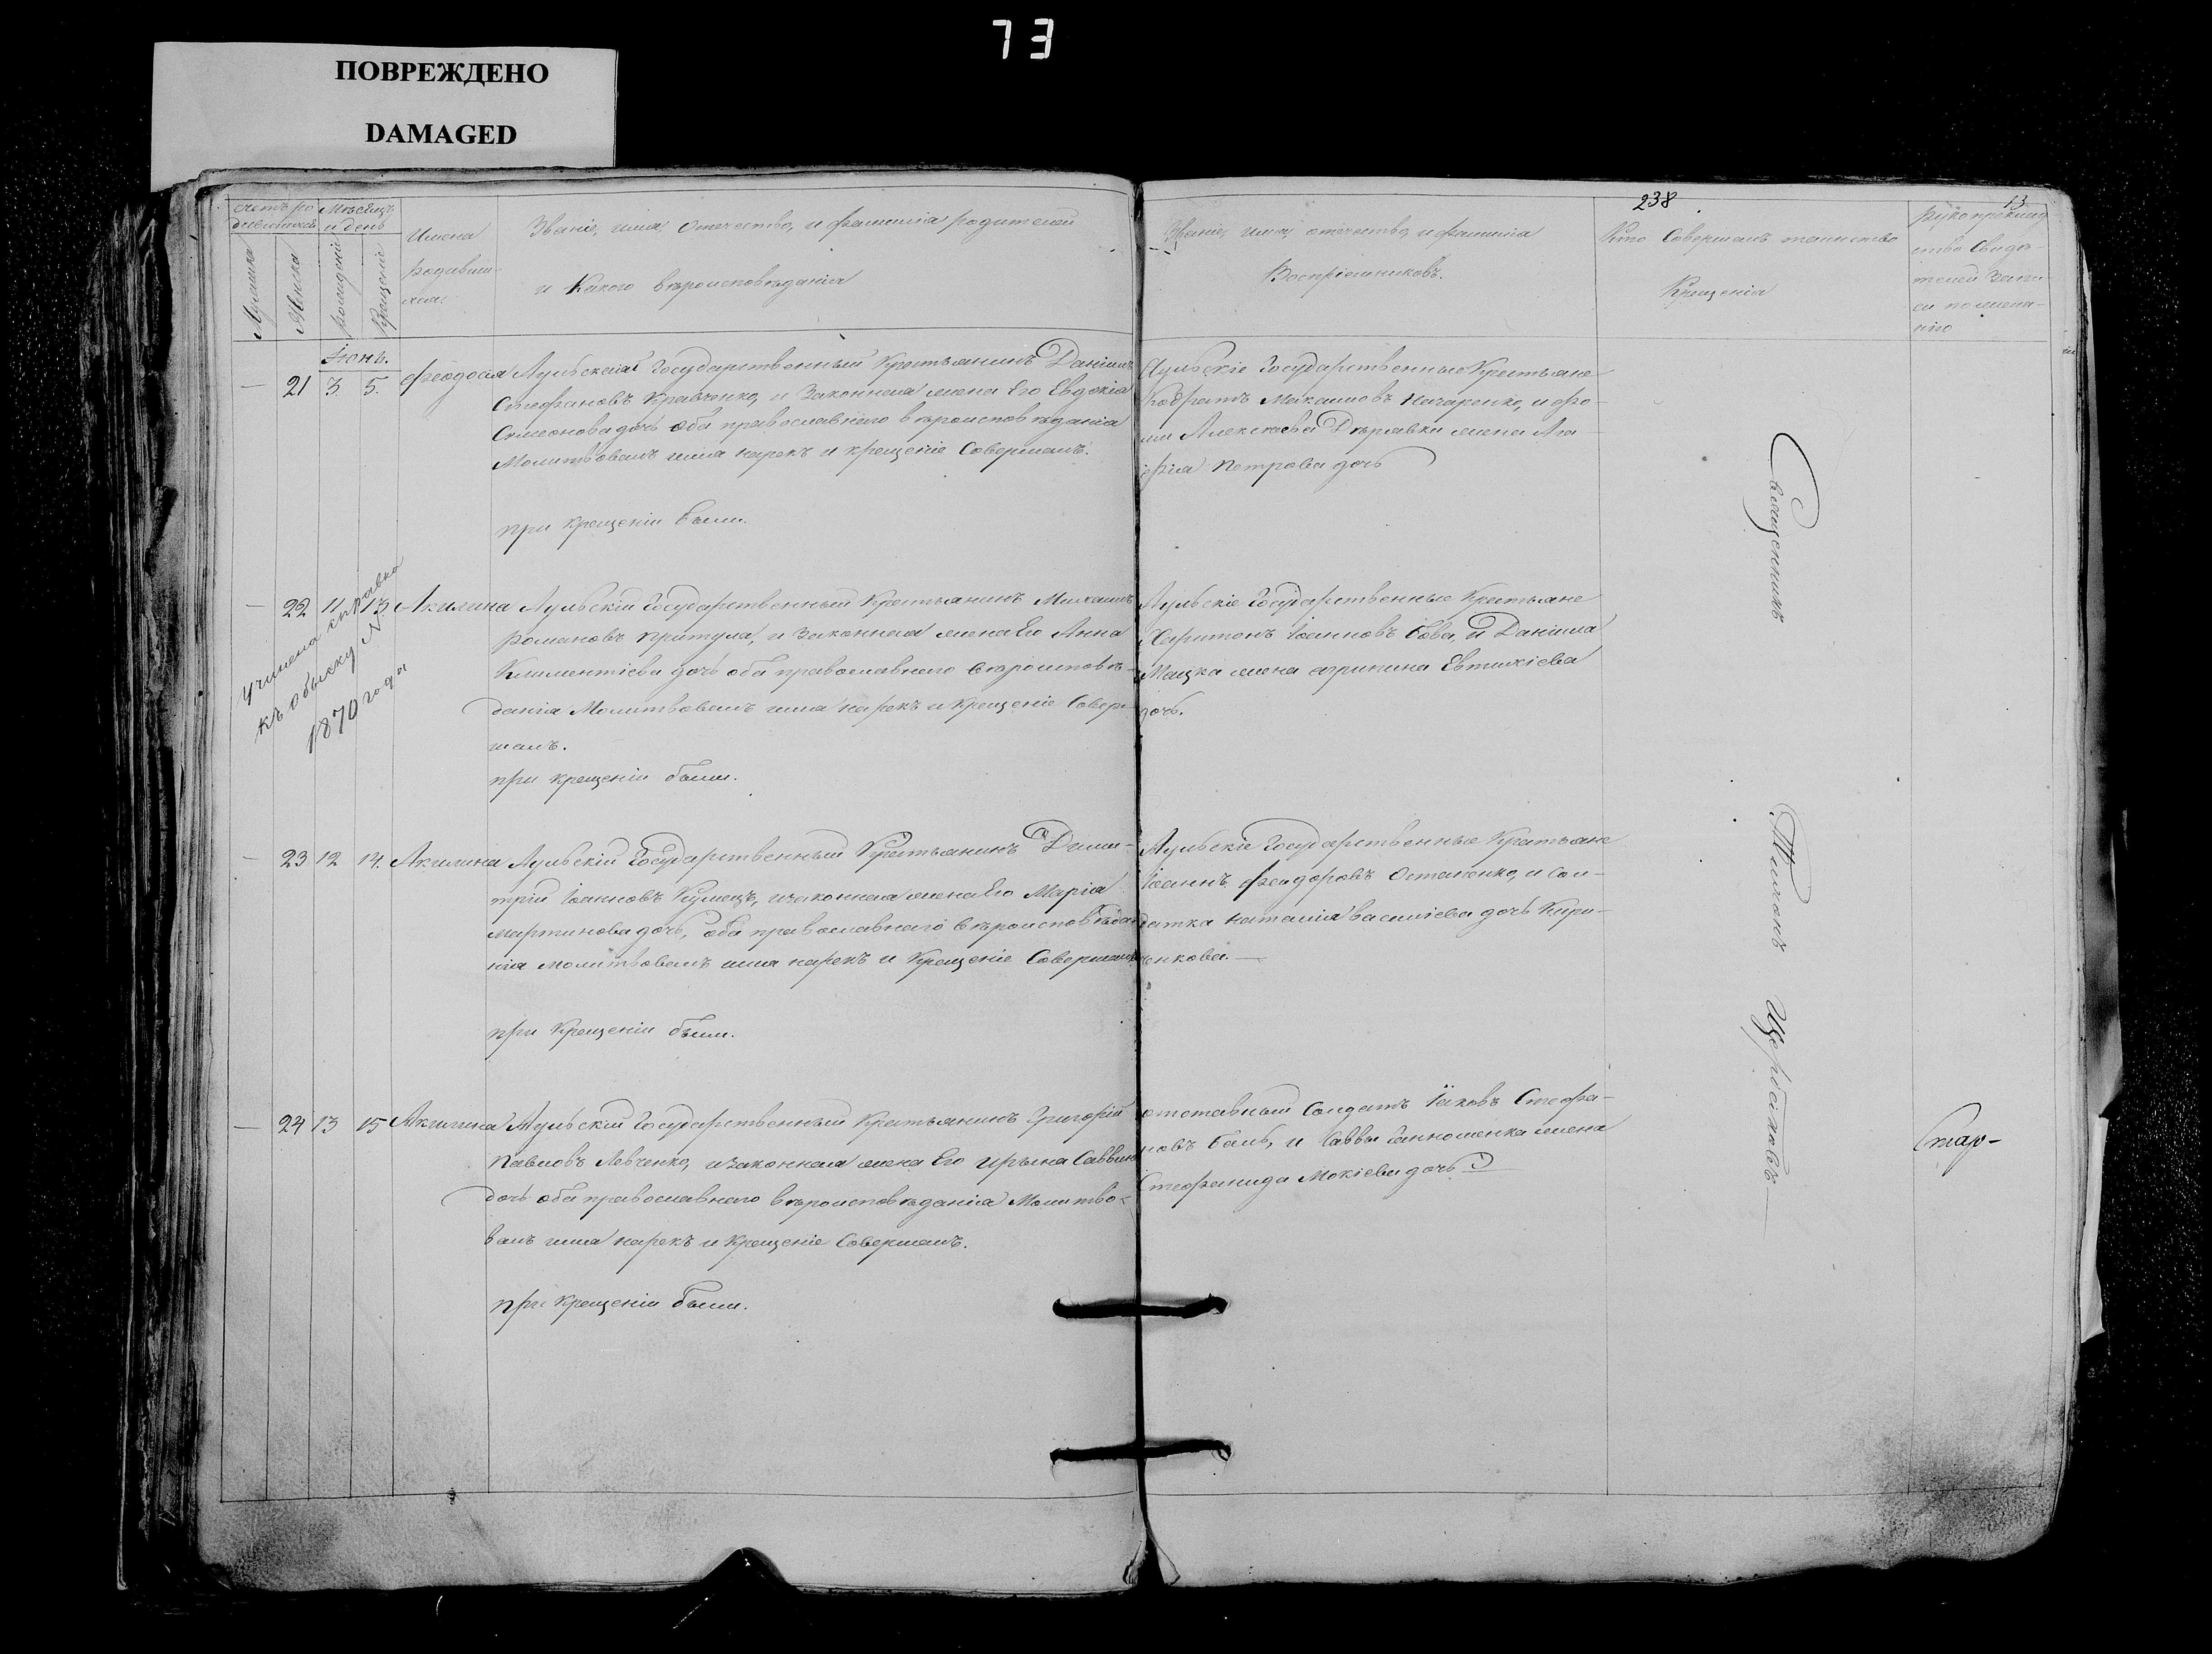 73
ПОВРЕЖДЕНО
DAMAGED
238
13.
счетъ ро
дившихся
Мѣсяцъ
и день
Мужска
Женска
рожденіе
Крещеніе
Имена
родивши-
хся.
Званіе, имя, отечество, и фамилія родителей
и Какого вѣроисповѣданія
Званіе, имя, отечество, и фамилія
Воспріемниковъ.
Кто Совершалъ таинство
Крещенія
рукоприклад
ство Свидѣ-
телей Запи-
си по жела-
нію
Іюнь.
21 3. 5. Феодосія
Государственный Крестьянинъ Даніилъ
Стефановъ Кравченко, и Законная жена Его Евдокія
Симеонова дочь оба православнаго вѣроисповѣданія
Молитвовалъ имя нарекъ и крещеніе Совершалъ.
при крещеніи были.
Государственные Крестьяне
Кодратъ Максимовъ Назаренко, и
Алексѣева жена Ага-
фія Петрова дочь
Учинена справка
къ обыску №
1870 года
22 11 13 Акилина
Государственный Крестьянинъ Михаилъ
Романовъ Притула, и Законная жена Его Анна
Климентіева дочь оба православнаго вѣроисповѣ-
данія Молитвовалъ имя нарекъ и Крещеніе Совер-
шалъ.
при крещеніи были.
Государственные Крестьяне
Харитонъ Іоанновъ Бова, и Даніила
жена Евтихіева
дочь.
23 12 14. Акилина
Государственный Крестьянинъ Дими-
трій Іоанновъ и законная жена Его Марія
Мартинова дочь, оба православнаго вѣроисповѣда-
нія молитвовалъ имя нарекъ и Крещеніе Совершалъ
при Крещеніи были.
Государственные Крестьяне
Іоаннъ Феодоровъ Остапенко, и Сол-
датка Наталія Василіева дочь Кири-
ченкова.
24 13 15 Акилина
Государственный Крестьянинъ Григорій
Павловъ Левченко, и законная жена Его Ирына Саввина
дочь оба православнаго вѣроисповѣданія Молитво-
валъ имя нарекъ и Крещеніе Совершалъ.
при Крещеніи были.
отставный Солдатъ Іаковъ Стефа-
новъ и Саввы жена
Стефанида Мокіева дочь
Священникъ
Щербаковъ